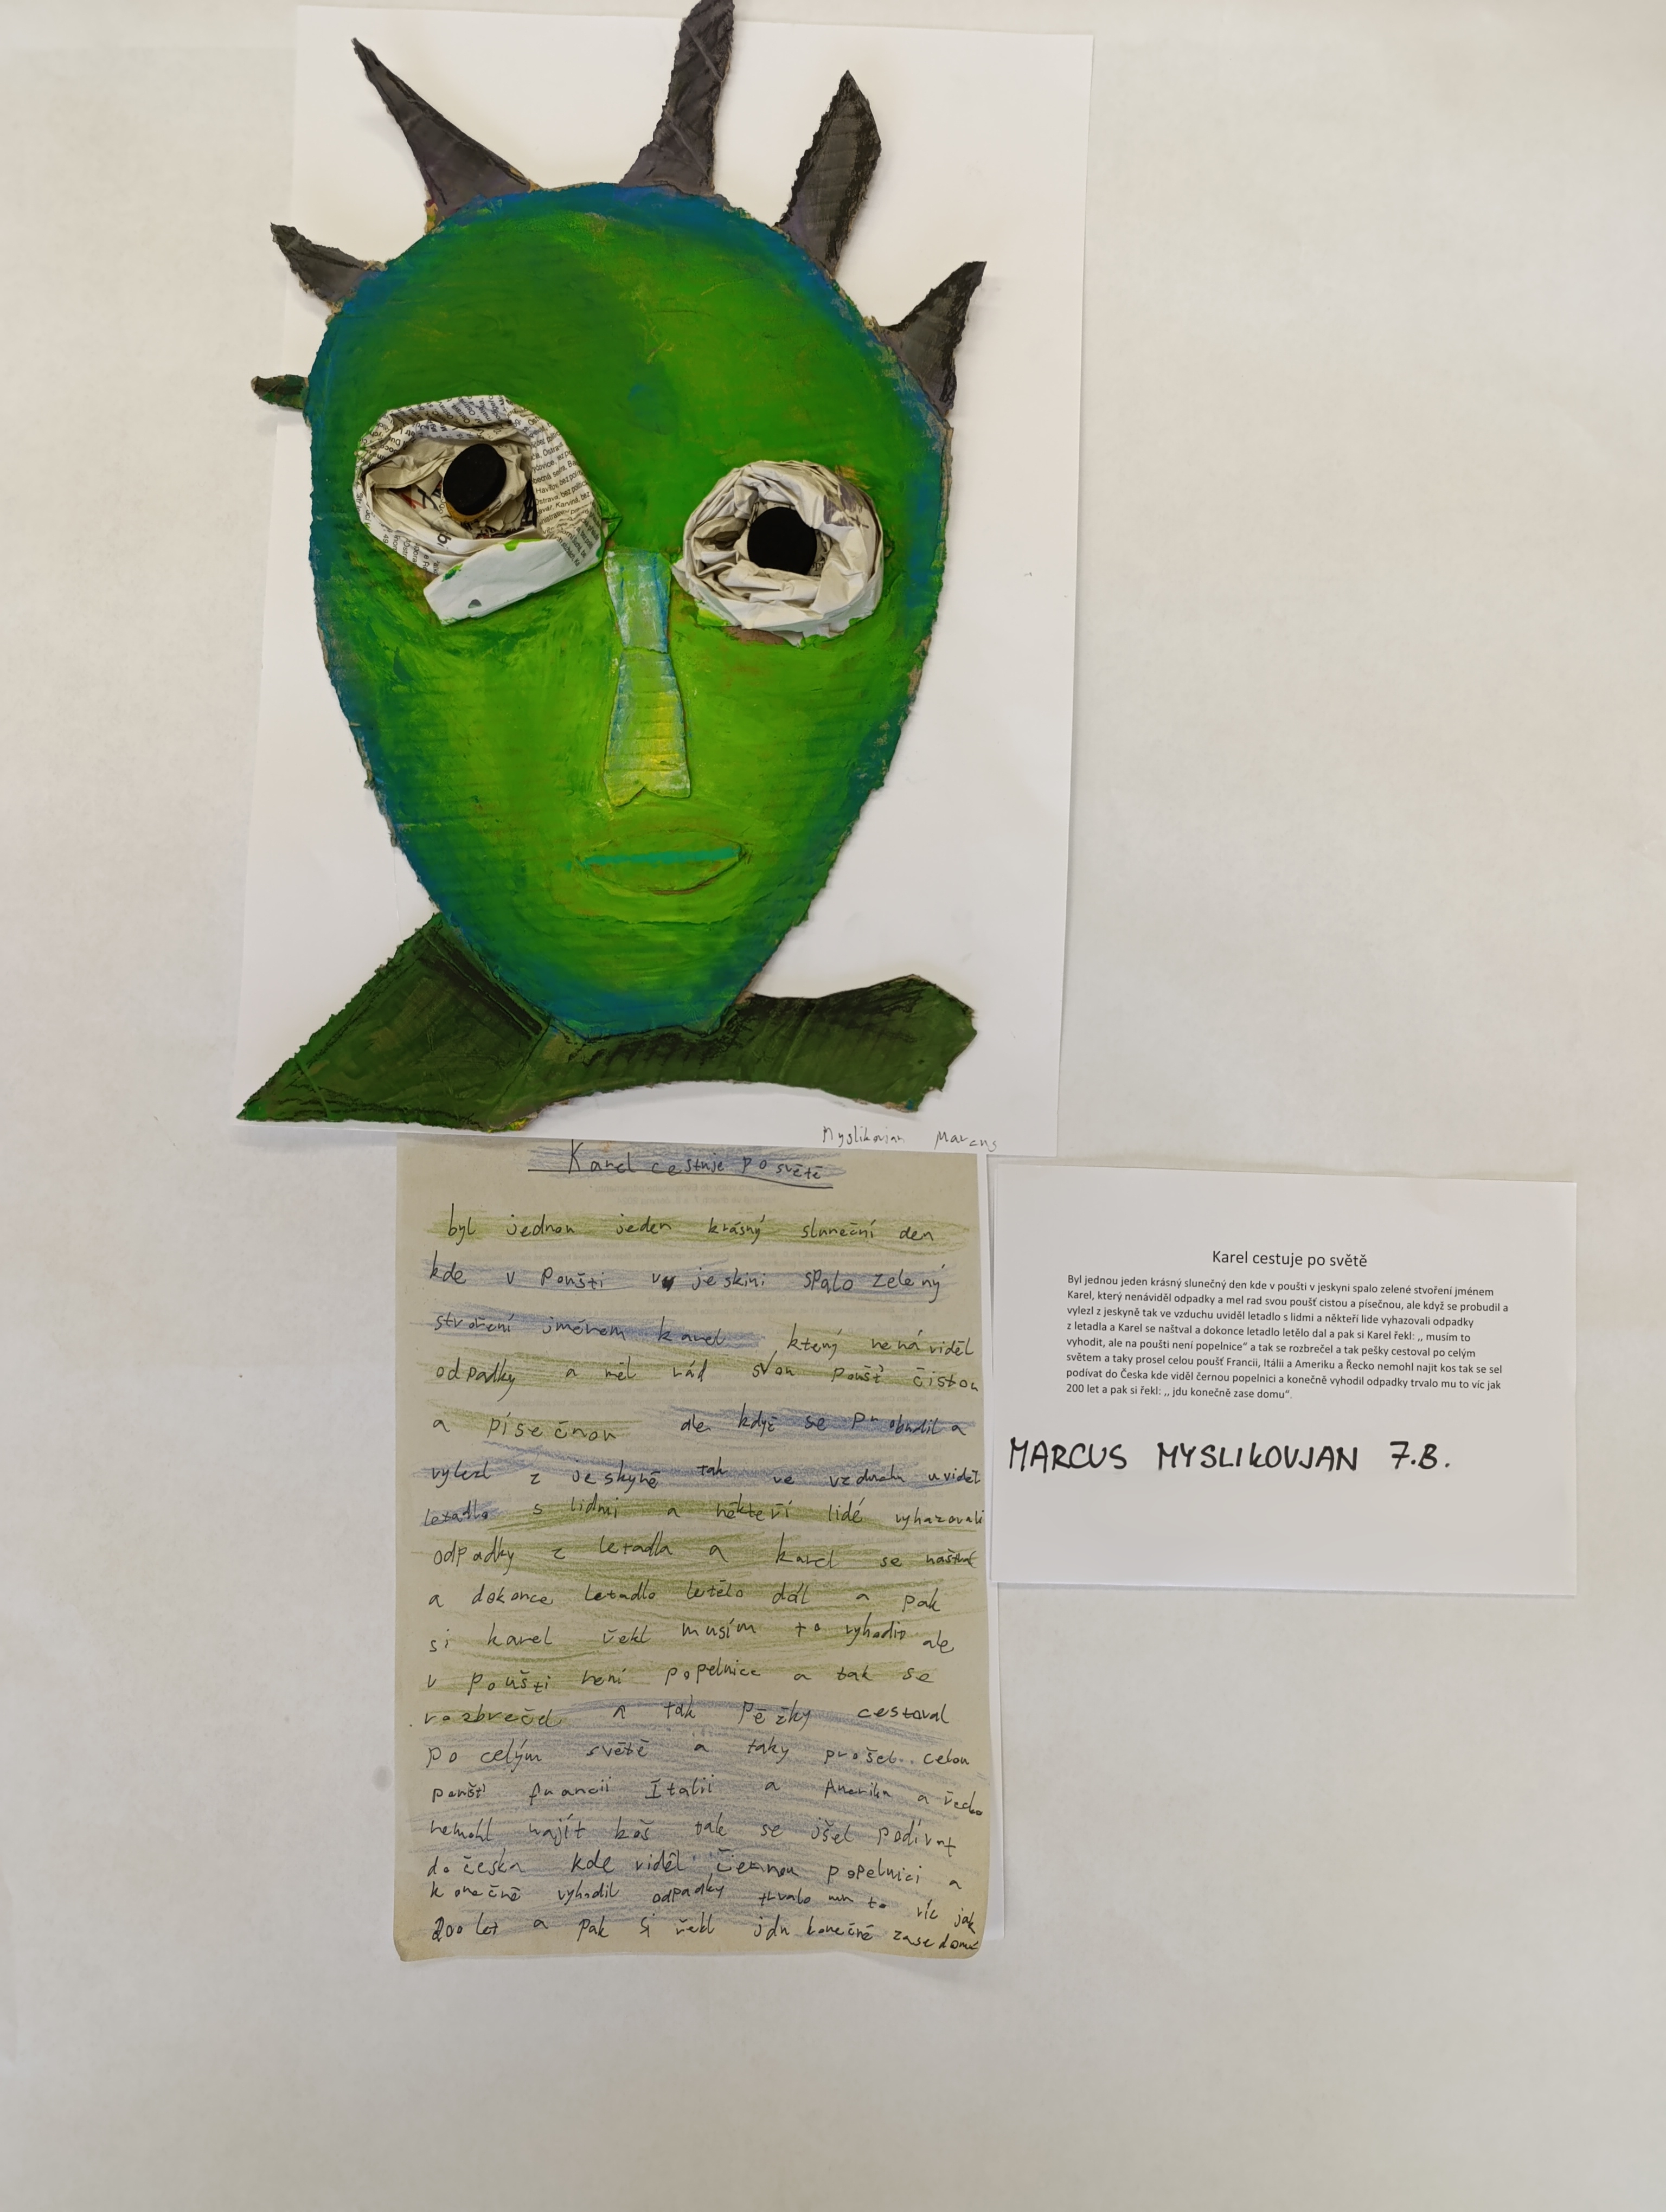 Myslikovjan Marcus
Karel cestuje po světě
byl jednou jeden krásný sluneční den
kde v poušti v jeskini spalo zelený
stvoření jménem karel který nenáviděl
odpadky a měl rád svou poušť čistou
a písečnou ale když se probudil a
vylezl z jeskyně tak ve vzduchu uviděl
letadlo s lidmi a někteří lidé vyhazovali
odpadky z letadla a karel se naštval
a dokonce letadlo letělo dál a pak
si karel řekl musím to vyhodit ale
v poušti není popelnice a tak se
rozbrečel a tak pěžky cestoval
po celým světě a taky prošel celou
poušť francii Itálii a Ameriku a řecko
nemohl najít koš tak se jšel podívat
do česka kde viděl černou popelnici a
konečně vyhodil odpadky trvalo mu to víc jak
200 let a pak si řekl jdu konečně zase domů
Karel cestuje po světě
Byl jednou jeden krásný slunečný den kde v poušti v jeskyni spalo zelené stvoření jménem
Karel, který nenáviděl odpadky a mel rad svou poušť cistou a písečnou, ale když se probudil a
vylezl z jeskyně tak ve vzduchu uviděl letadlo s lidmi a někteří lide vyhazovali odpadky
z letadla a Karel se naštval a dokonce letadlo letělo dal a pak si Karel řekl: ,, musím to
vyhodit, ale na poušti není popelnice“ a tak se rozbrečel a tak pešky cestoval po celým
světem a taky prosel celou poušť Francii, Itálii a Ameriku a Řecko nemohl najit kos tak se sel
podívat do Česka kde viděl černou popelnici a konečně vyhodil odpadky trvalo mu to víc jak
200 let a pak si řekl: ,, jdu konečně zase domu“.
MARCUS MYSLIKOVJAN 7.B.